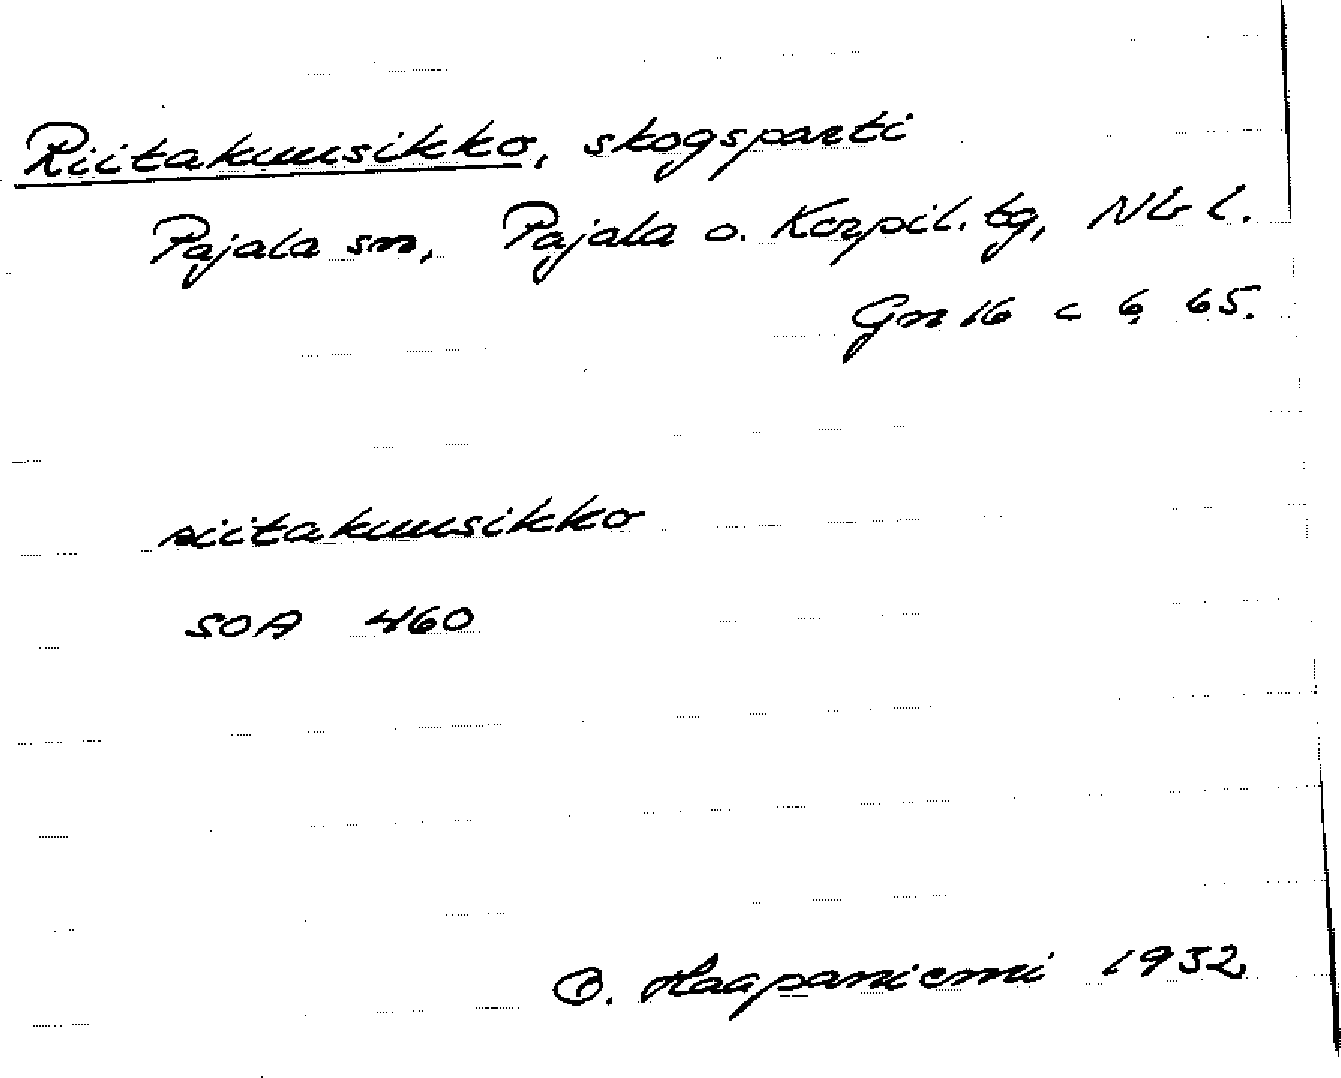 Riitakuusikko, skogsparti
Pajala sn, Pajala o. Korpil. tg, Nb l.
Gn 16 c 6 65.
riitakuusikko
SOA 460
O. Haapaniemi 1932